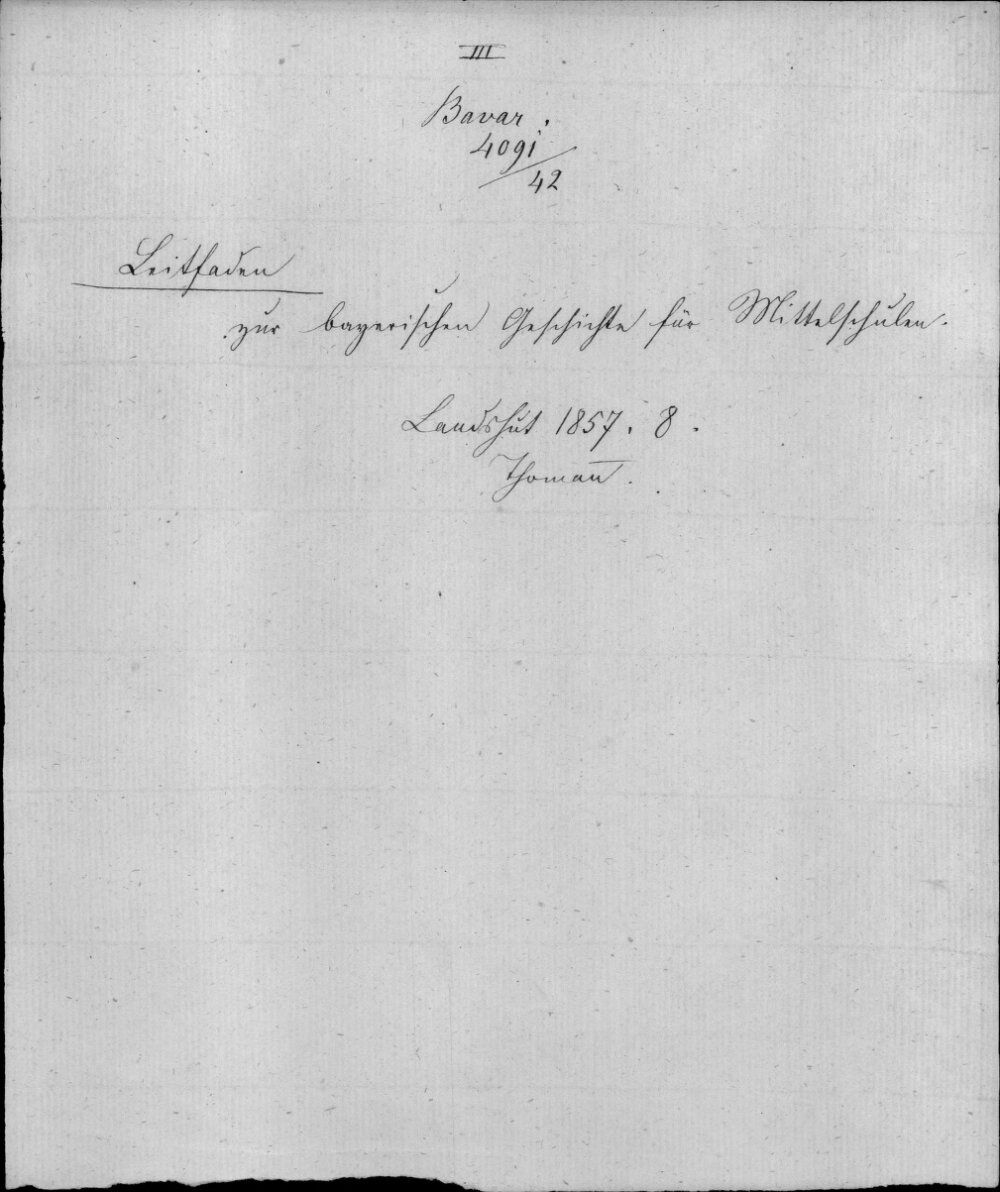 III
Bavar.
4091i
/42
Leitfaden
zur bayerischen Geschichte für Mittelschulen.
Landshut 1857. 8.
Thomañ.